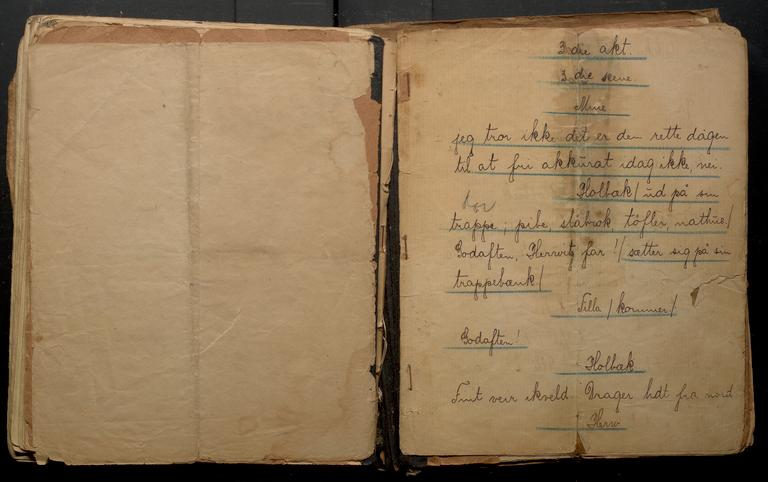 3die akt.
3die scene.
Mine
jeg tror ikke det er den rette dagen
til at fri akkurat idag ikke, nei.
Holbæk / ud på sin
trappe; pibe, slåbrok, töfler, nathue. /
Godaften, Herwits far! / sætter sig på sin
trappebænk /
Tilla / kommer /
Godaften!
Holbæk
Fint veir ikveld. Drager lidt fra nord